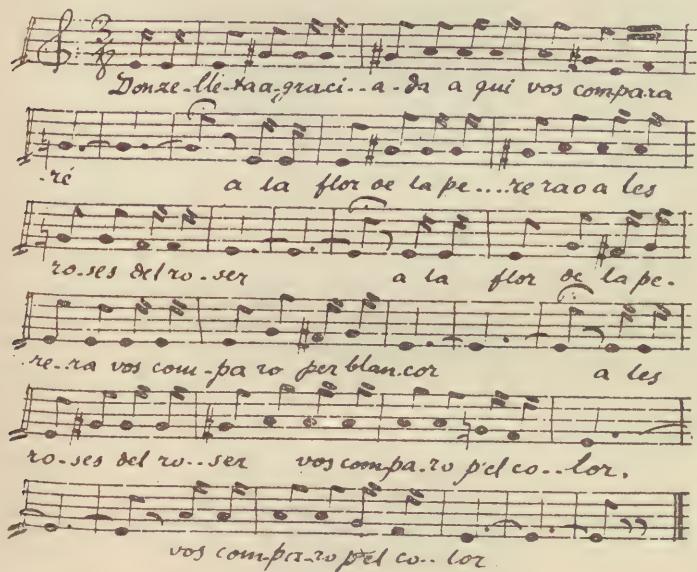 Donze-lle-taa-graci--a-da a qui vos compara
-ré a la flor de la pe....re rao a les
ro-ses del ro-ser a la flor de la pe-
re-ra vos com-pa ro per blan.cor a les
ro-ses del ro--ser vos com pa-ro p'el co--lor.
vos com-pa-ro p'el co--lor